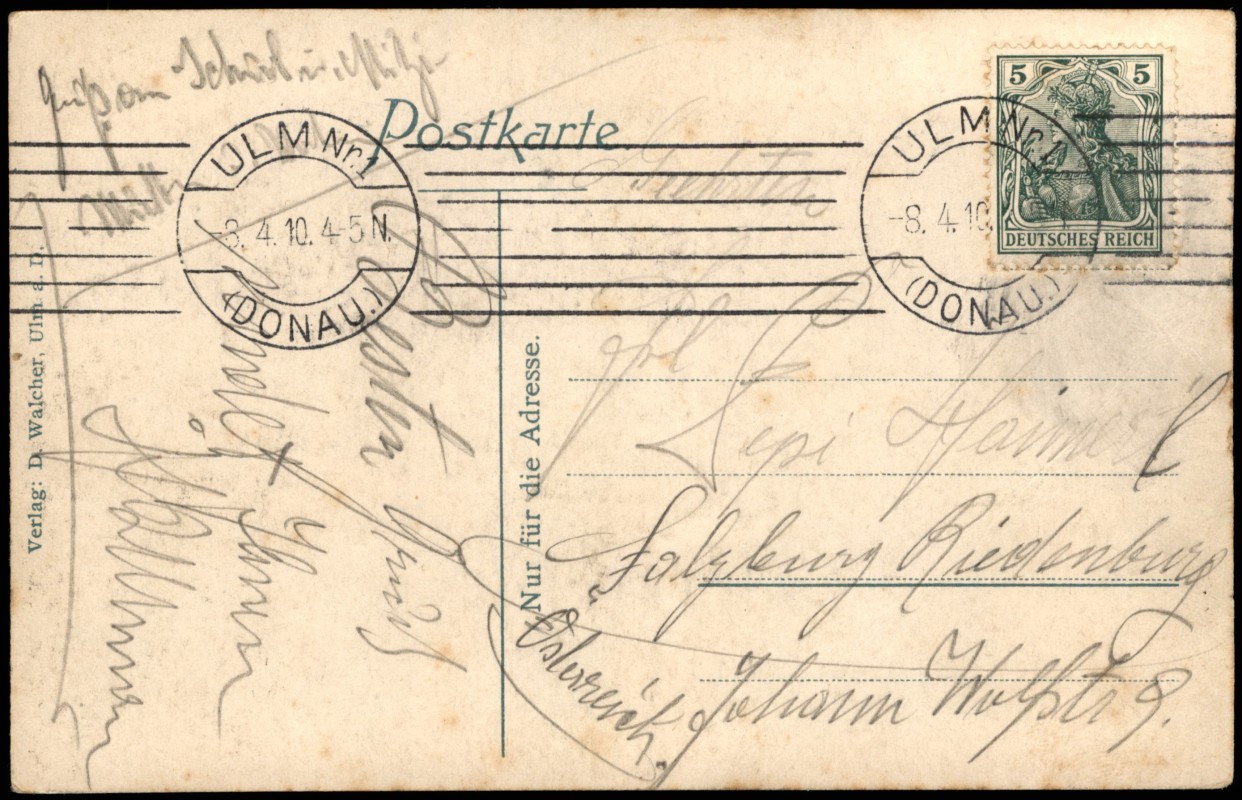 Postkarte
5 5
DEUTSCHES REICH
ULM Nr. 1
-8. 4. 10. 4-5 N.
(DONAU.)
ULM Nr. 1
-8. 4. 10
(DONAU.)
Gruß an
Besten Gruß
sendet Ihnen
Nur für die Adresse.
Verlag: D. Walcher, Ulm a. D.
Frl
Pepi
Salzburg Riedenburg
Österreich.
Johann Wolfstr 9.